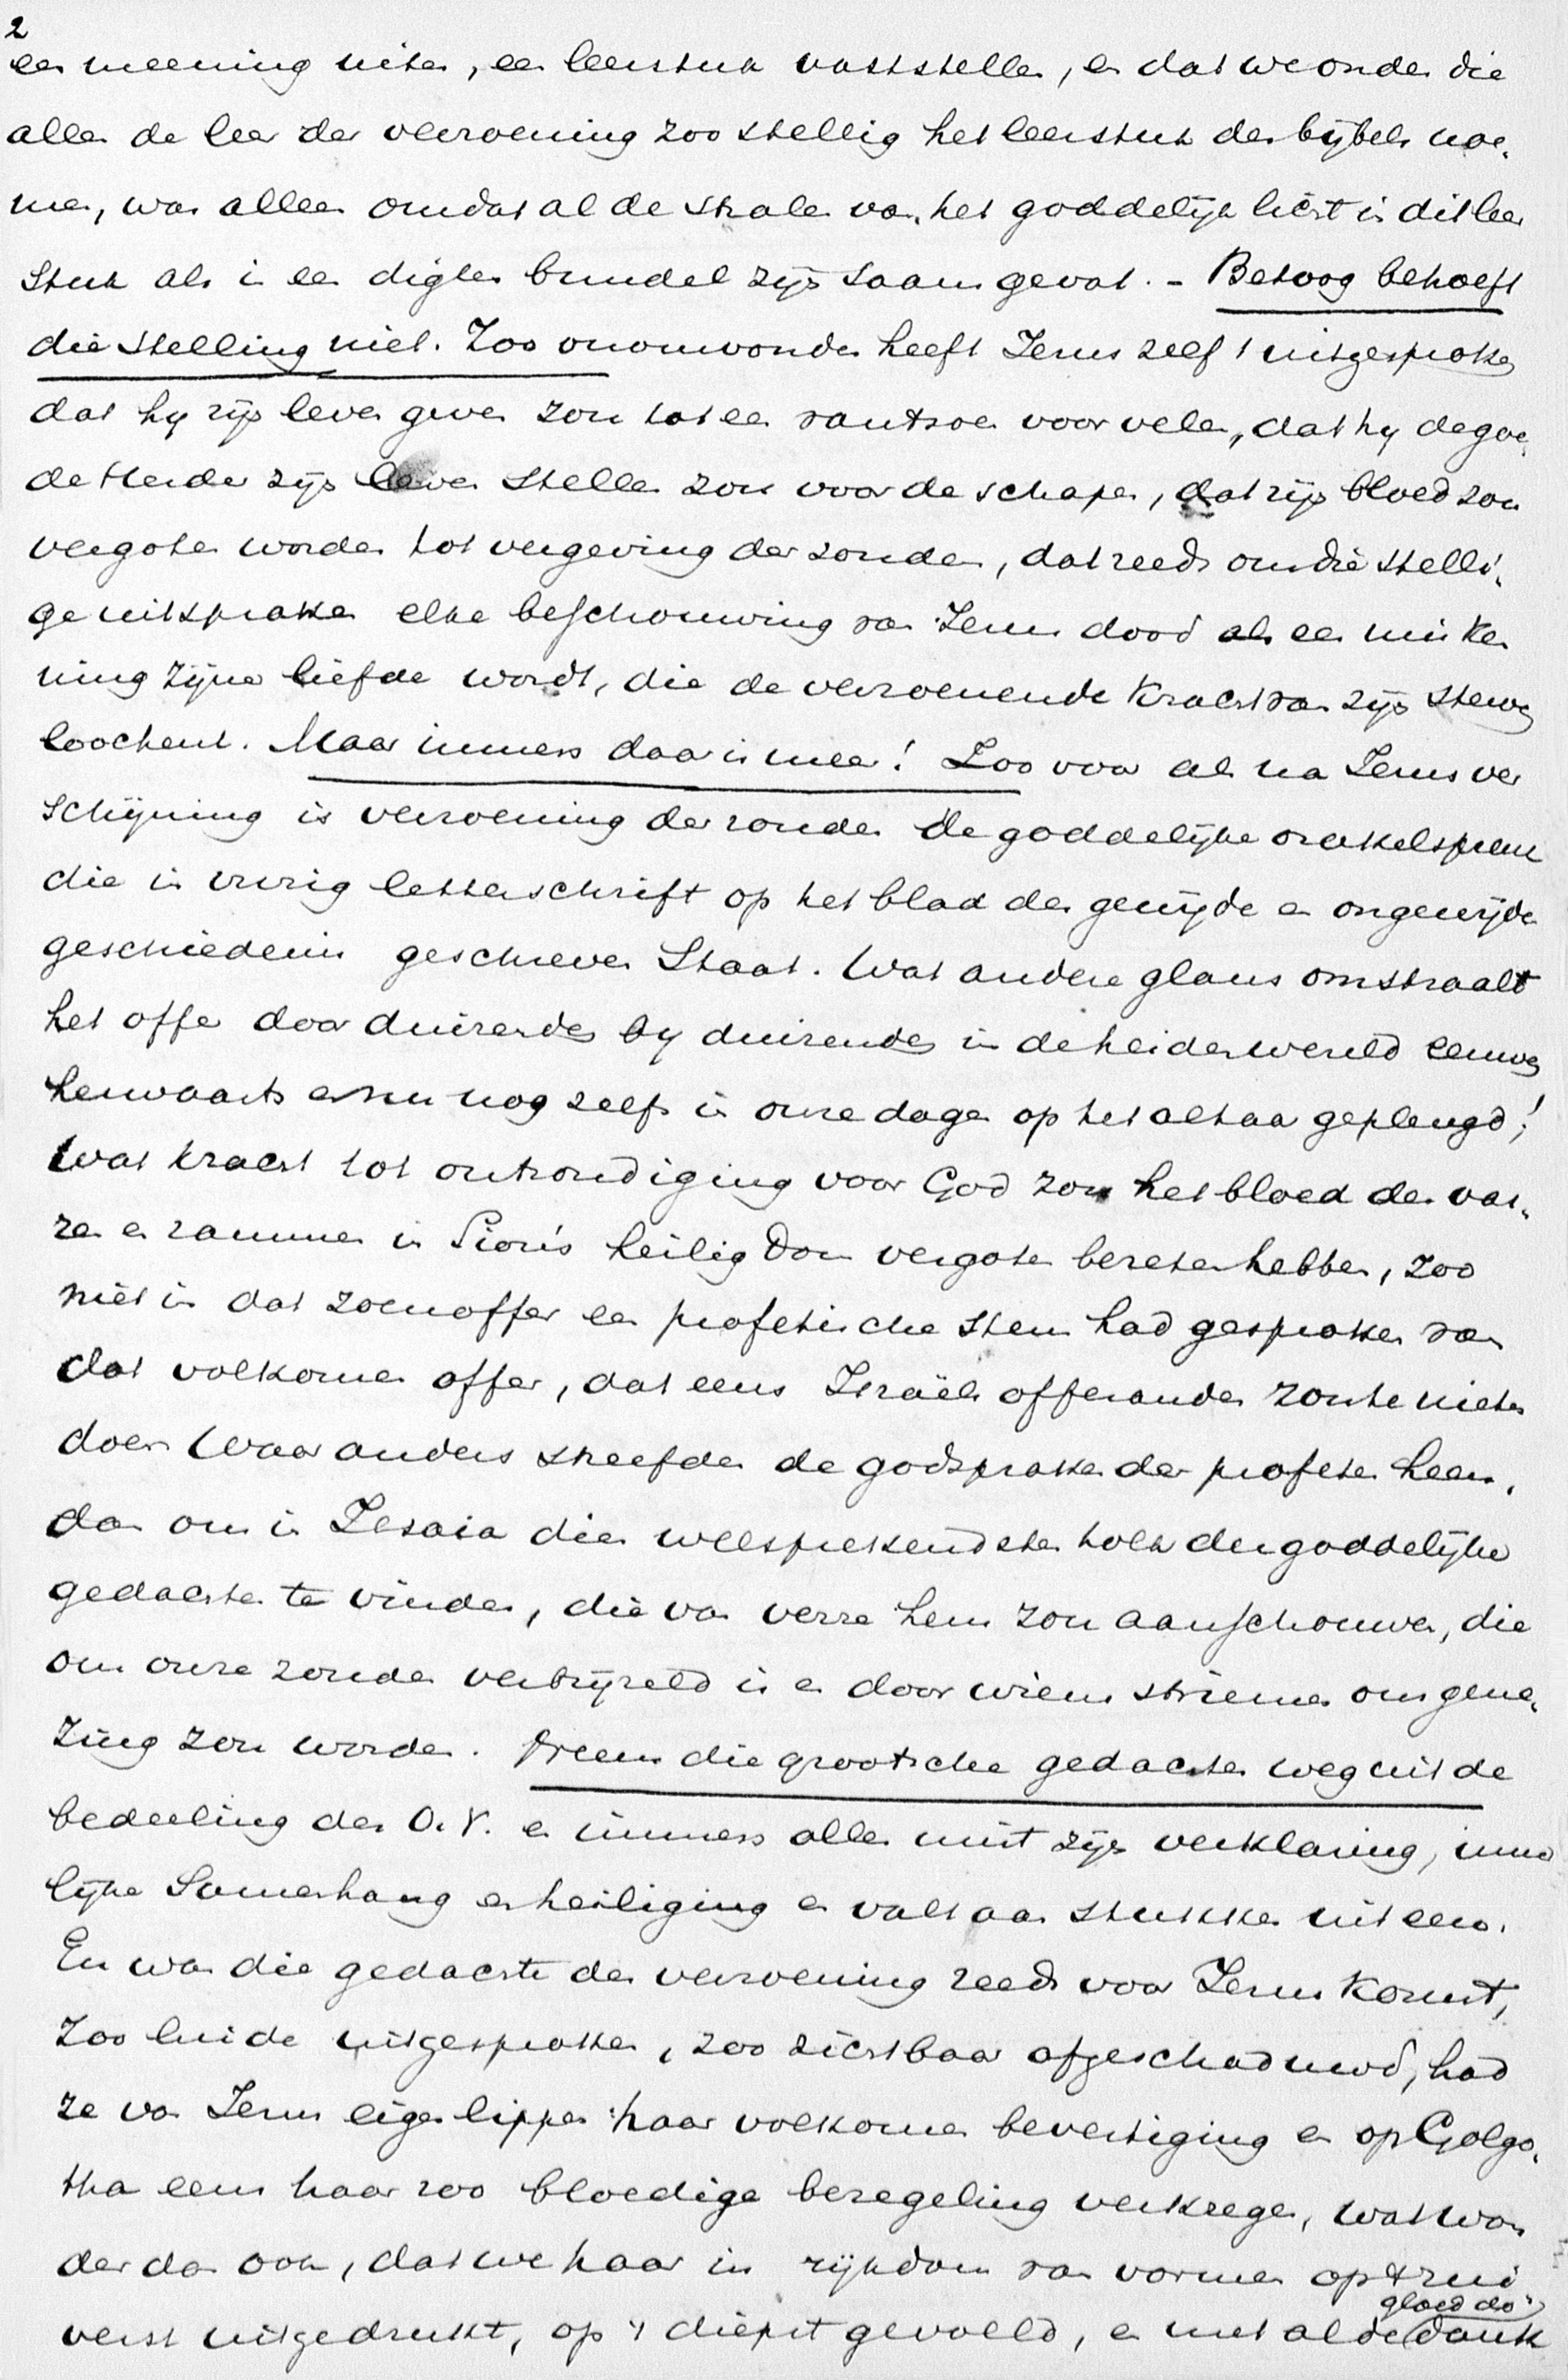 2
een meening uiten, een leerstuk vaststellen, en dat we onder die
allen de leer der verzoening zoo stellig het leerstuk des bijbels noe-
men, was alleen omdat al de stralen van het goddelijk licht in dit leer
stuk als in een digten bundel zijn saamgevat. - Betoog behoeft
die stelling niet. Zoo onomwonden heeft Jezus zelf 't uitgesproken
dat hy zijn leven geven zou tot een rantsoen voor velen, dat hy de goe-
de Herder zijn leven stellen zou voor de schapen, dat zijn bloed zou
vergoten worden tot vergeving der zonden, dat reeds om die stelli-
ge uitspraken elke beschouwing van Jezus dood als een misken
ning zijner liefde wordt, die de verzoenende kracht van zijn sterven
loochent. Maar immers daar is meer! Zoo voor als na Jezus ver
schijning is verzoening der zonden de goddelijke orakelspreuk
die in vurig letterschrift op het blad der gewijde en ongewijde
geschiedenis geschreven staat. Wat andere glans omstraalt
het offer door duizenden by duizenden in de heidenwereld eeuwen
herwaarts en nu nog zelfs in onze dagen op het altaar geplengd!
Wat kracht tot ontzondiging voor God zou het bloed der var-
ren en rammen in Sion's heiligdom vergoten bezeten hebben, zoo
niet in dat zoenoffer een profetische stem had gesproken van
dat volkomen offer, dat eens Israëls offeranden zou te niet
doen Waar anders streefden de godspraken der profeten heen,
dan om in Jesaia dien welsprekendsten tolk der goddelijke
gedachten te vinden, die van verre hem zou aanschouwen, die
om onze zonden verbrijzeld is en door wiens striemen ons gene-
zing zou worden. Neem die grootsche gedachten weg uit de
bedeeling des O.V. en immers alles mist zijn verklaring, inner
lijke samenhang en heiliging en valt aan stukken uiteen.
En was die gedachte der verzoening reeds voor Jezus komst,
zoo luide uitgesproken, zoo zichtbaar afgeschaduwd, had
ze van Jezus eigen lippen haar volkomen bevestiging en op Golgo-
tha eens haar zoo bloedige bezegeling verkregen, wat won
der dan ook, dat we haar in rijkdom van vormen op 't zui
gloed do
verst uitgedrukt, op 't diepst gevoeld, en met al de dank